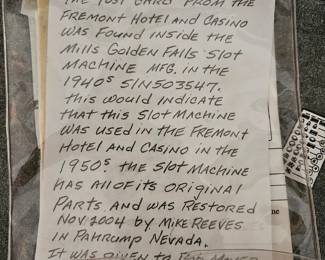 THE POST CARD FROM THE
FREMONT HOTEL AND CASINO
WAS FOUND INSIDE THE
MILLS GOLDEN FALLS SLOT
MACHINE MFG. IN THE
1940S S/N 503547.
THIS WOULD INDICATE
THAT THIS SLOT MACHINE
WAS USED IN THE FREMONT
HOTEL AND CASINO IN THE
1950S. THE SLOT MACHINE
HAS ALL OF ITS ORIGINAL
PARTS AND WAS RESTORED
NOV. 2004 BY MIKE REEVES
IN PAHRUMP NEVADA.
IT WAS GIVEN TO